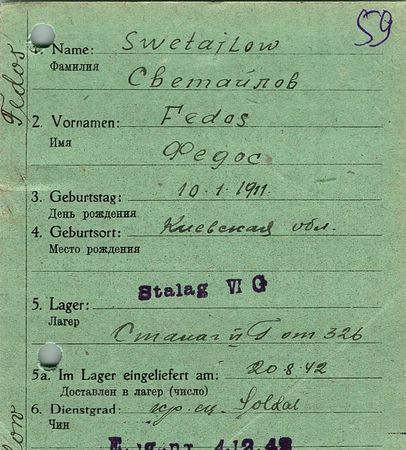 59
1. Name: Swetajlow
Фамилия
Светайлов
2. Vornamen: Fedos
Имя
Федос
3. Geburtstag: 10.1.1911.
День рождения
4. Geburtsort: Киевская обл.
Место рождения
Stalag VI G
5. Lager:
Лагерь
Сталаг от 326
5a. Im Lager eingeliefert am: 20 8.42
Доставлен в лагерь (число)
6. Dienstgrad: Soldat
Чин
4.12.42
Fedos